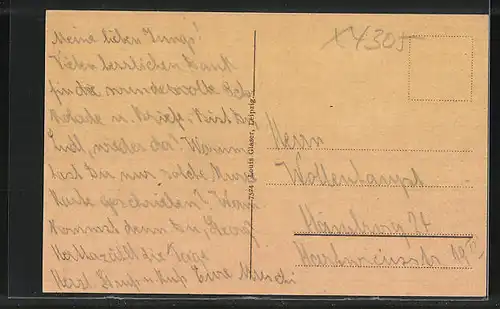 Meine lieben Jungs!
Vielen herzlichen Dank
für die wundervolle Scho-
kolade u. Brief. Bist Du,
Emil, wieder da? Warum
hast Du nur solche
Karte geschrieben? Wann
kommst denn Du, Georg
die Tage
Herzl. Gruß u. Kuß Eure Muschi
X4305
7594 Louis Glaser, Leipzig
Herrn
Wollenhaupt
Hamburg 24